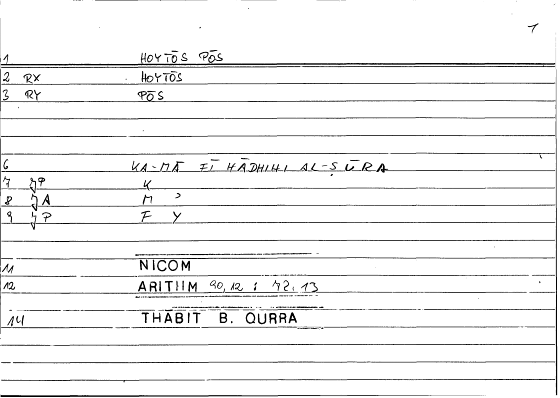 1
1 HOYTŌS PŌS
2 RX HOYTŌS
3 RY PŌS
6 KA-MĀ FĪ HĀDHIHI AL-ṢŪRA
7 JP K
8 JA M ʾ
9 JP F Y
11 NICOM
12 ARITHM 90,12 : 72,13
14 THABIT B. QURRA